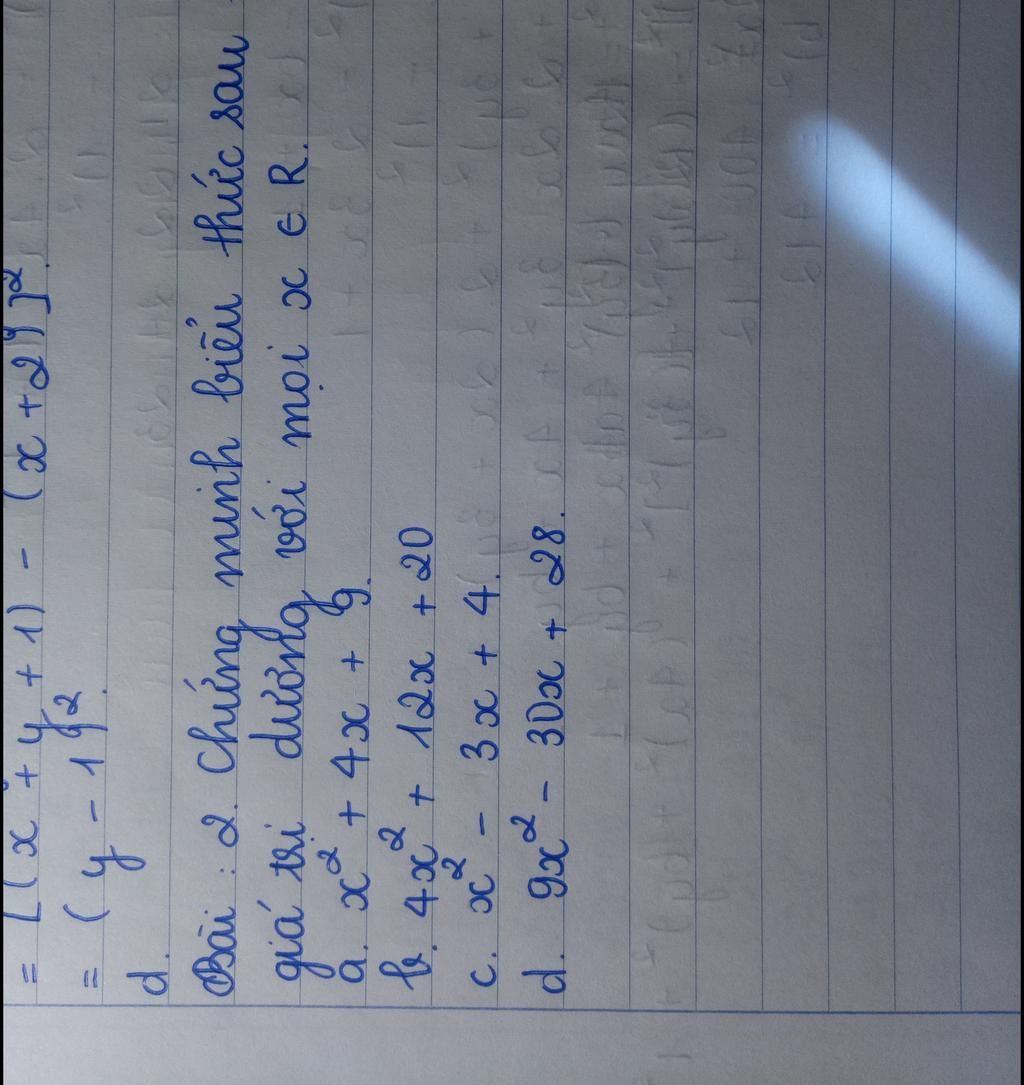 = [(x + y + 1) - (x + 2)]²
= (y - 1)².
d.
Bài: 2. Chứng minh biểu thức sau
giá trị dương với mọi x ∈ R.
a. x² + 4x + 9.
b. 4x² + 12x + 20
c. x² - 3x + 4.
d. 9x² - 30x + 28.